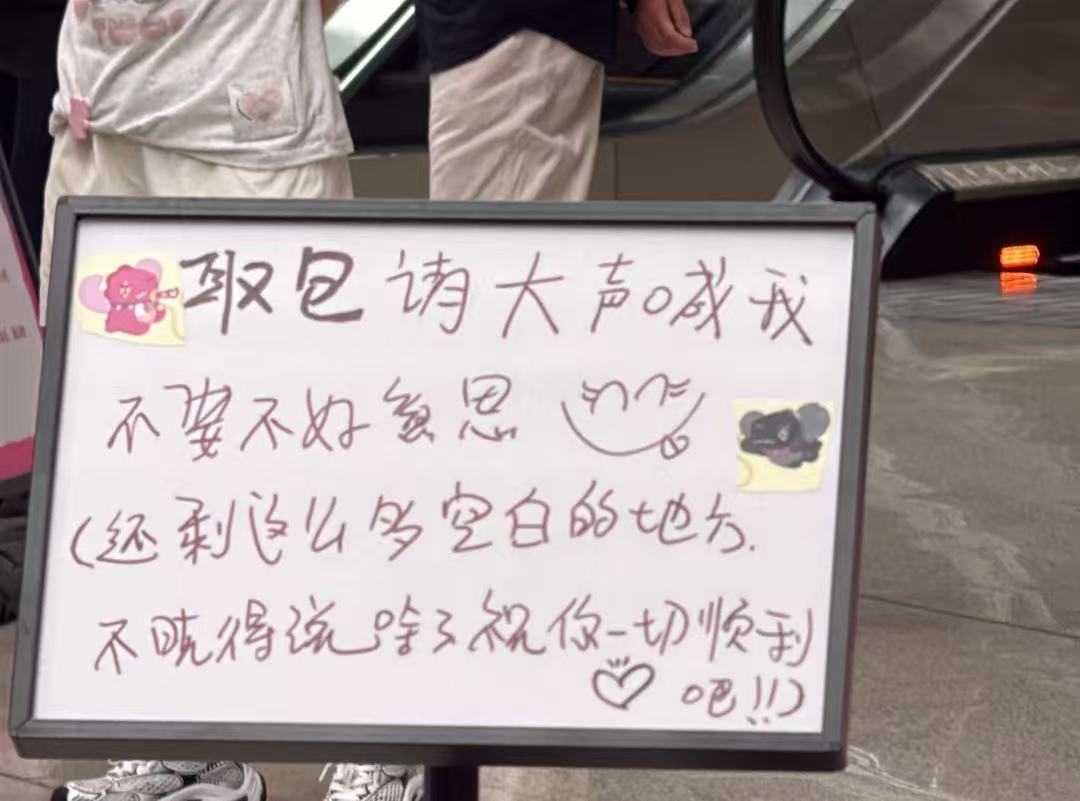 取包请大声喊我
不要不好意思
(还剩这么多空白的地方.
不晓得说啥了祝你一切顺利
吧!!)